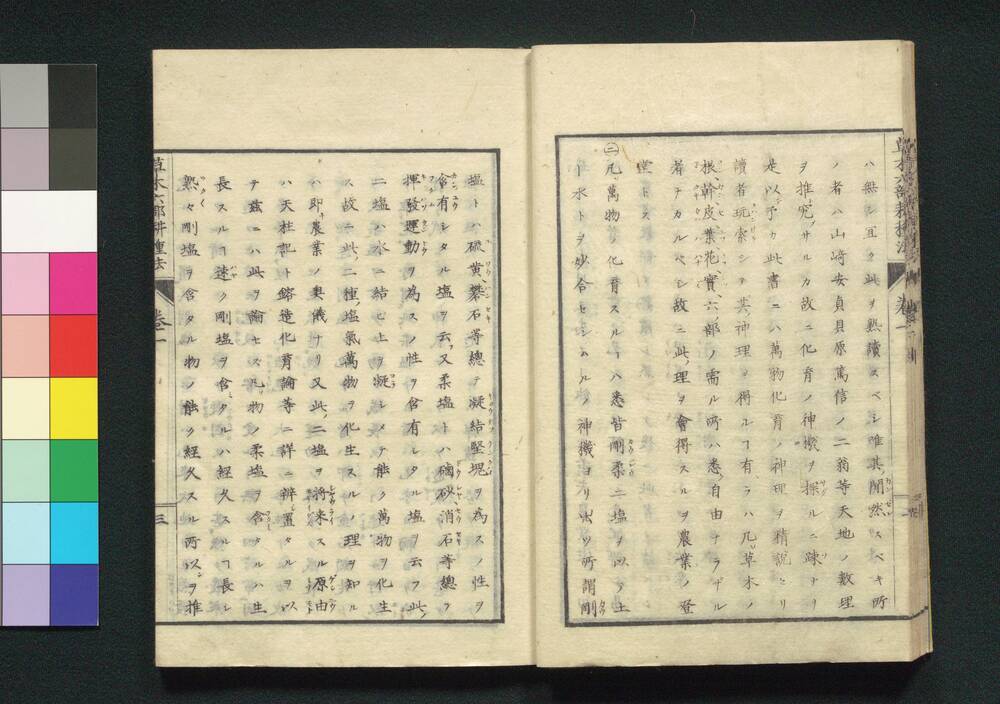 ハ無シ宜ク此ヲ熟讀スベシ唯其間然スベキ所
ノ者ハ山崎安貞貝原篤信ノ二翁等天地ノ數理
ヲ推究サルカ故ニ化育ノ神機ヲ探ルニ疎ナリ
是以予カ此書ニハ萬物化育ノ神理ヲ精說セリ
讀者玩索シテ其神理ヲ得ルヿ有ラハ凡草木ノ
根幹皮葉花實六部ノ需ル所ハ悉自由ナラザル
者ナカルベシ故ニ此理ヲ會得スルヲ農業ノ登
堂トス
㊁凡萬物ノ化育スルヿハ悉皆剛柔二塩ヲ以テ土
ト水トヲ妙合セシムルノ神機ヨリ出ツ所謂剛
塩トハ硫黄礬石等總テ凝結堅塊ヲ為スノ性ヲ
含有シタル塩ヲ云又柔塩トハ硇砂消石等總テ
揮發運動ヲ為スノ性ヲ含有ルタル塩ヲ云フ此
二塩ハ水ニ結ビ土ヲ凝シメテ能ク萬物ヲ化生
ス故ニ此二種塩氣萬物ヲ化生スルノ理ヲ知ル
ハ即農業ノ奥儀ナリ又此二塩ヲ將来スル原由
ハ天柱記ト鎔造化育論等ニ詳ニ辨置タルヲ以
テ茲ニハ此ヲ論セス凡物ノ柔塩ヲ含タルハ生
長スルヿ速ク剛塩ヲ含タルハ經久スルヿ長シ
熟々剛塩ヲ含タル物ノ能ク經久スル所以ヲ推
草木六部耕種法
卷一
三